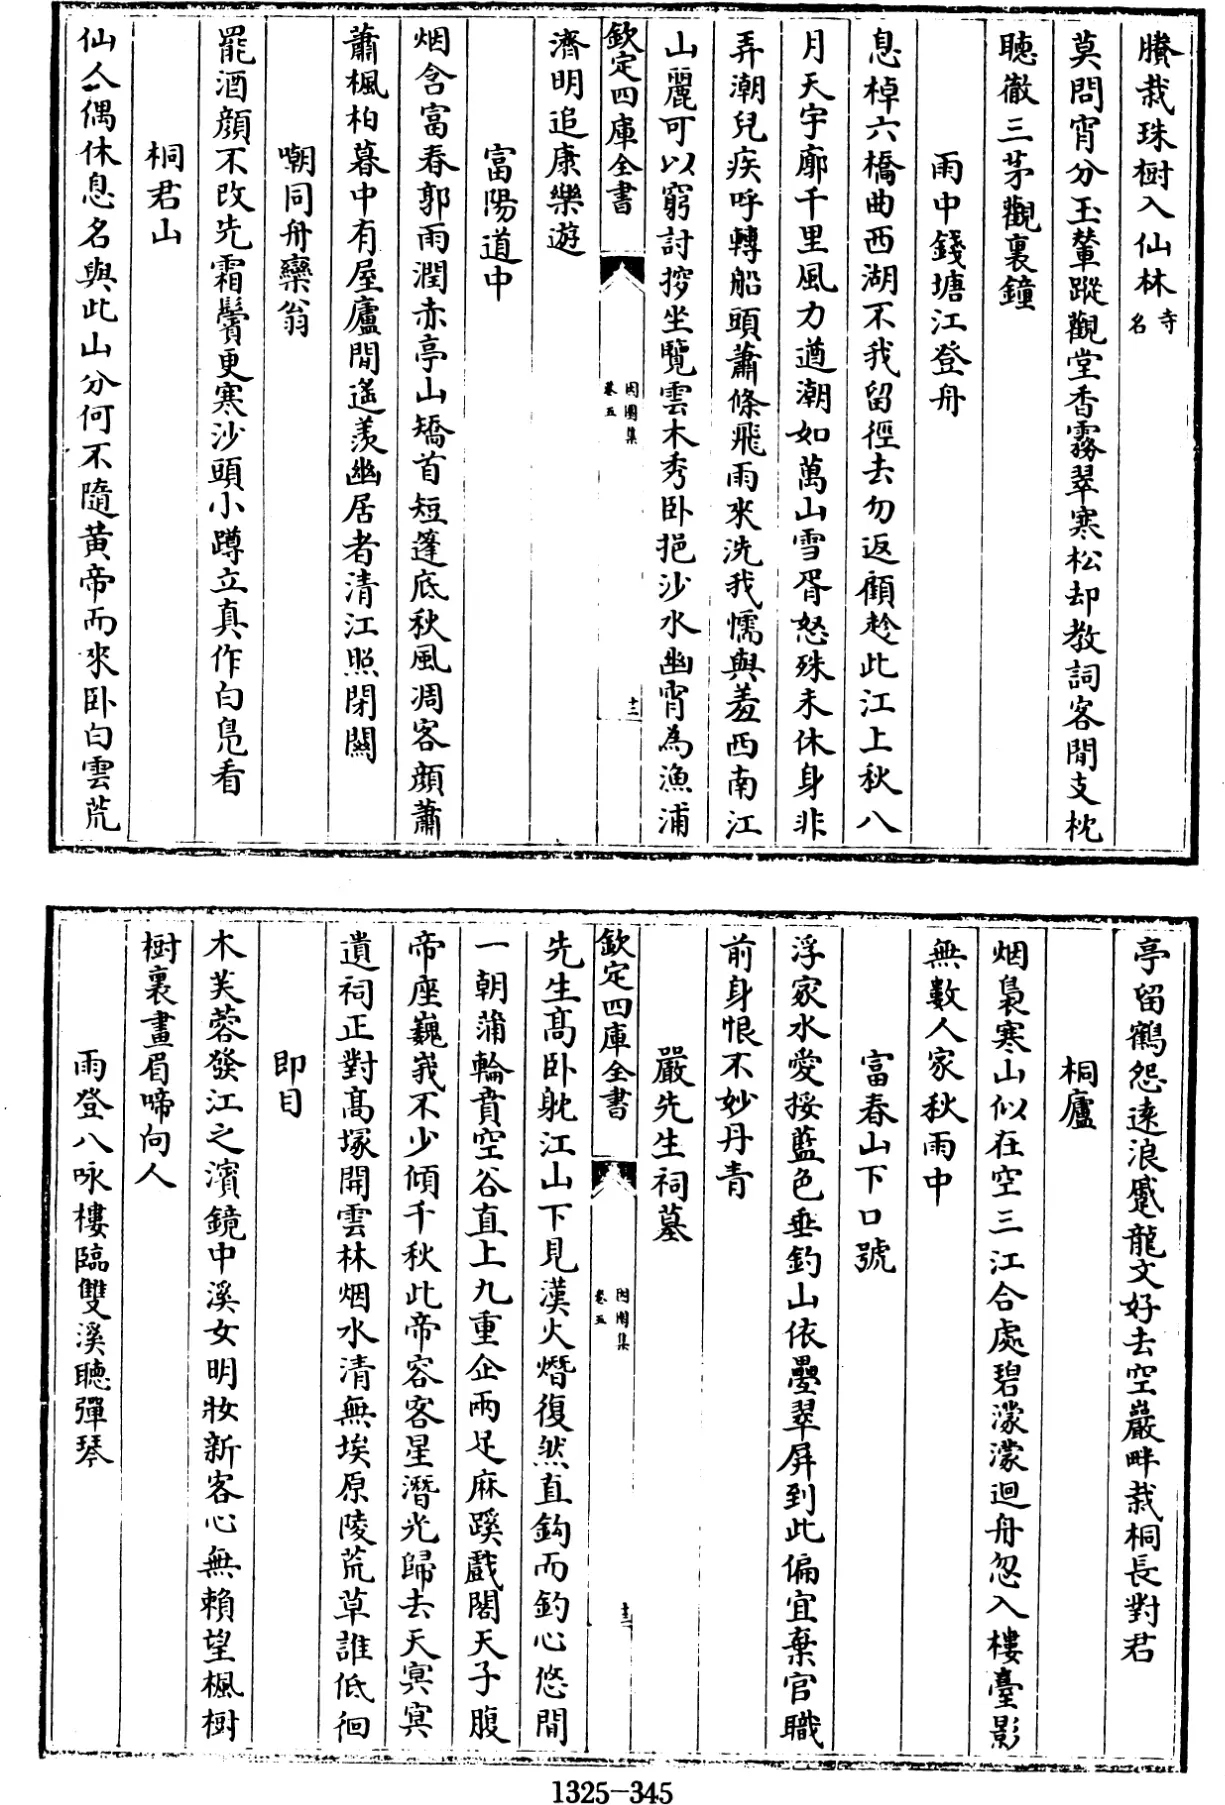 賸栽珠樹入仙林寺名
莫問宵分玉輦蹤觀堂香霧翠寒松却教詞客閒支枕
聽徹三茅觀裏鐘
雨中錢塘江登舟
息棹六橋曲西湖不我留徑去勿返顧趁此江上秋八
月天宇廓千里風力遒潮如萬山雪胥怒殊未休身非
弄潮兒疾呼轉船頭蕭條飛雨來洗我懦與羞西南江
山麗可以窮討捊坐覽雲木秀卧挹沙水幽宵為漁浦
欽定四庫全書
因園集
卷五
十二
濟明追康樂遊
富陽道中
烟含富春郭雨潤赤亭山矯首短篷底秋風凋客顏蕭
蕭楓柏暮中有屋廬閒遥羨幽居者清江照閉關
嘲同舟欒翁
罷酒顏不改先霜鬢更寒沙頭小蹲立真作白鳧看
桐君山
仙人偶休息名與此山分何不隨黃帝而來卧白雲荒
亭留鶴怨遠浪蹙龍文好去空巖畔栽桐長對君
桐廬
烟裊寒山似在空三江合處碧濛濛迴舟忽入樓臺影
無數人家秋雨中
富春山下口號
浮家水愛挼藍色垂釣山依疊翠屏到此偏宜棄官職
前身恨不妙丹青
嚴先生祠墓
欽定四庫全書
因園集
卷五
先生高卧躭江山下見漢火熸復然直鈎而釣心悠閒
一朝蒲輪賁空谷直上九重企兩足麻蹊戲閣天子腹
帝座巍峩不少傾千秋此帝容客星潛光歸去天冥冥
遺祠正對高塚開雲林烟水清無埃原陵荒草誰低徊
即目
木芙蓉發江之濱鏡中溪女明妝新客心無賴望楓樹
樹裏畫眉啼向人
雨登八咏樓臨雙溪聽彈琴
1325-345